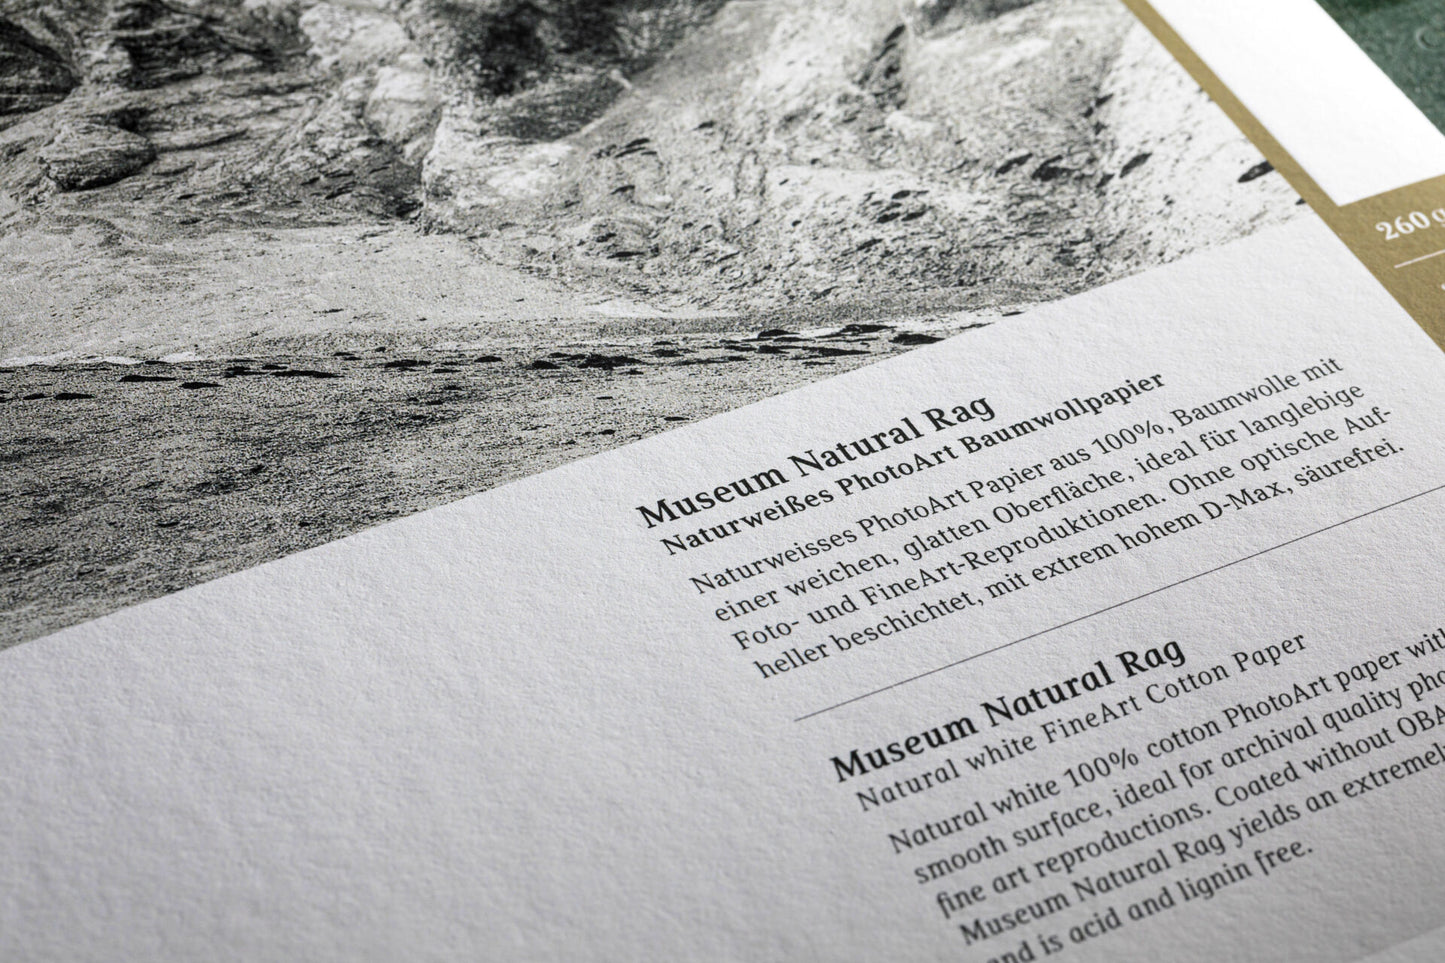 260 g
Museum Natural Rag
Naturweißes PhotoArt Baumwollpapier
Naturweisses PhotoArt Papier aus 100%, Baumwolle mit
einer weichen, glatten Oberfläche, ideal für langlebige
Foto- und FineArt-Reproduktionen. Ohne optische Auf-
heller beschichtet, mit extrem hohem D-Max, säurefrei.
Museum Natural Rag
Natural white FineArt Cotton Paper
Natural white 100% cotton PhotoArt paper with
smooth surface, ideal for archival quality pho
fine art reproductions. Coated without OBA
Museum Natural Rag yields an extremel
and is acid and lignin free.